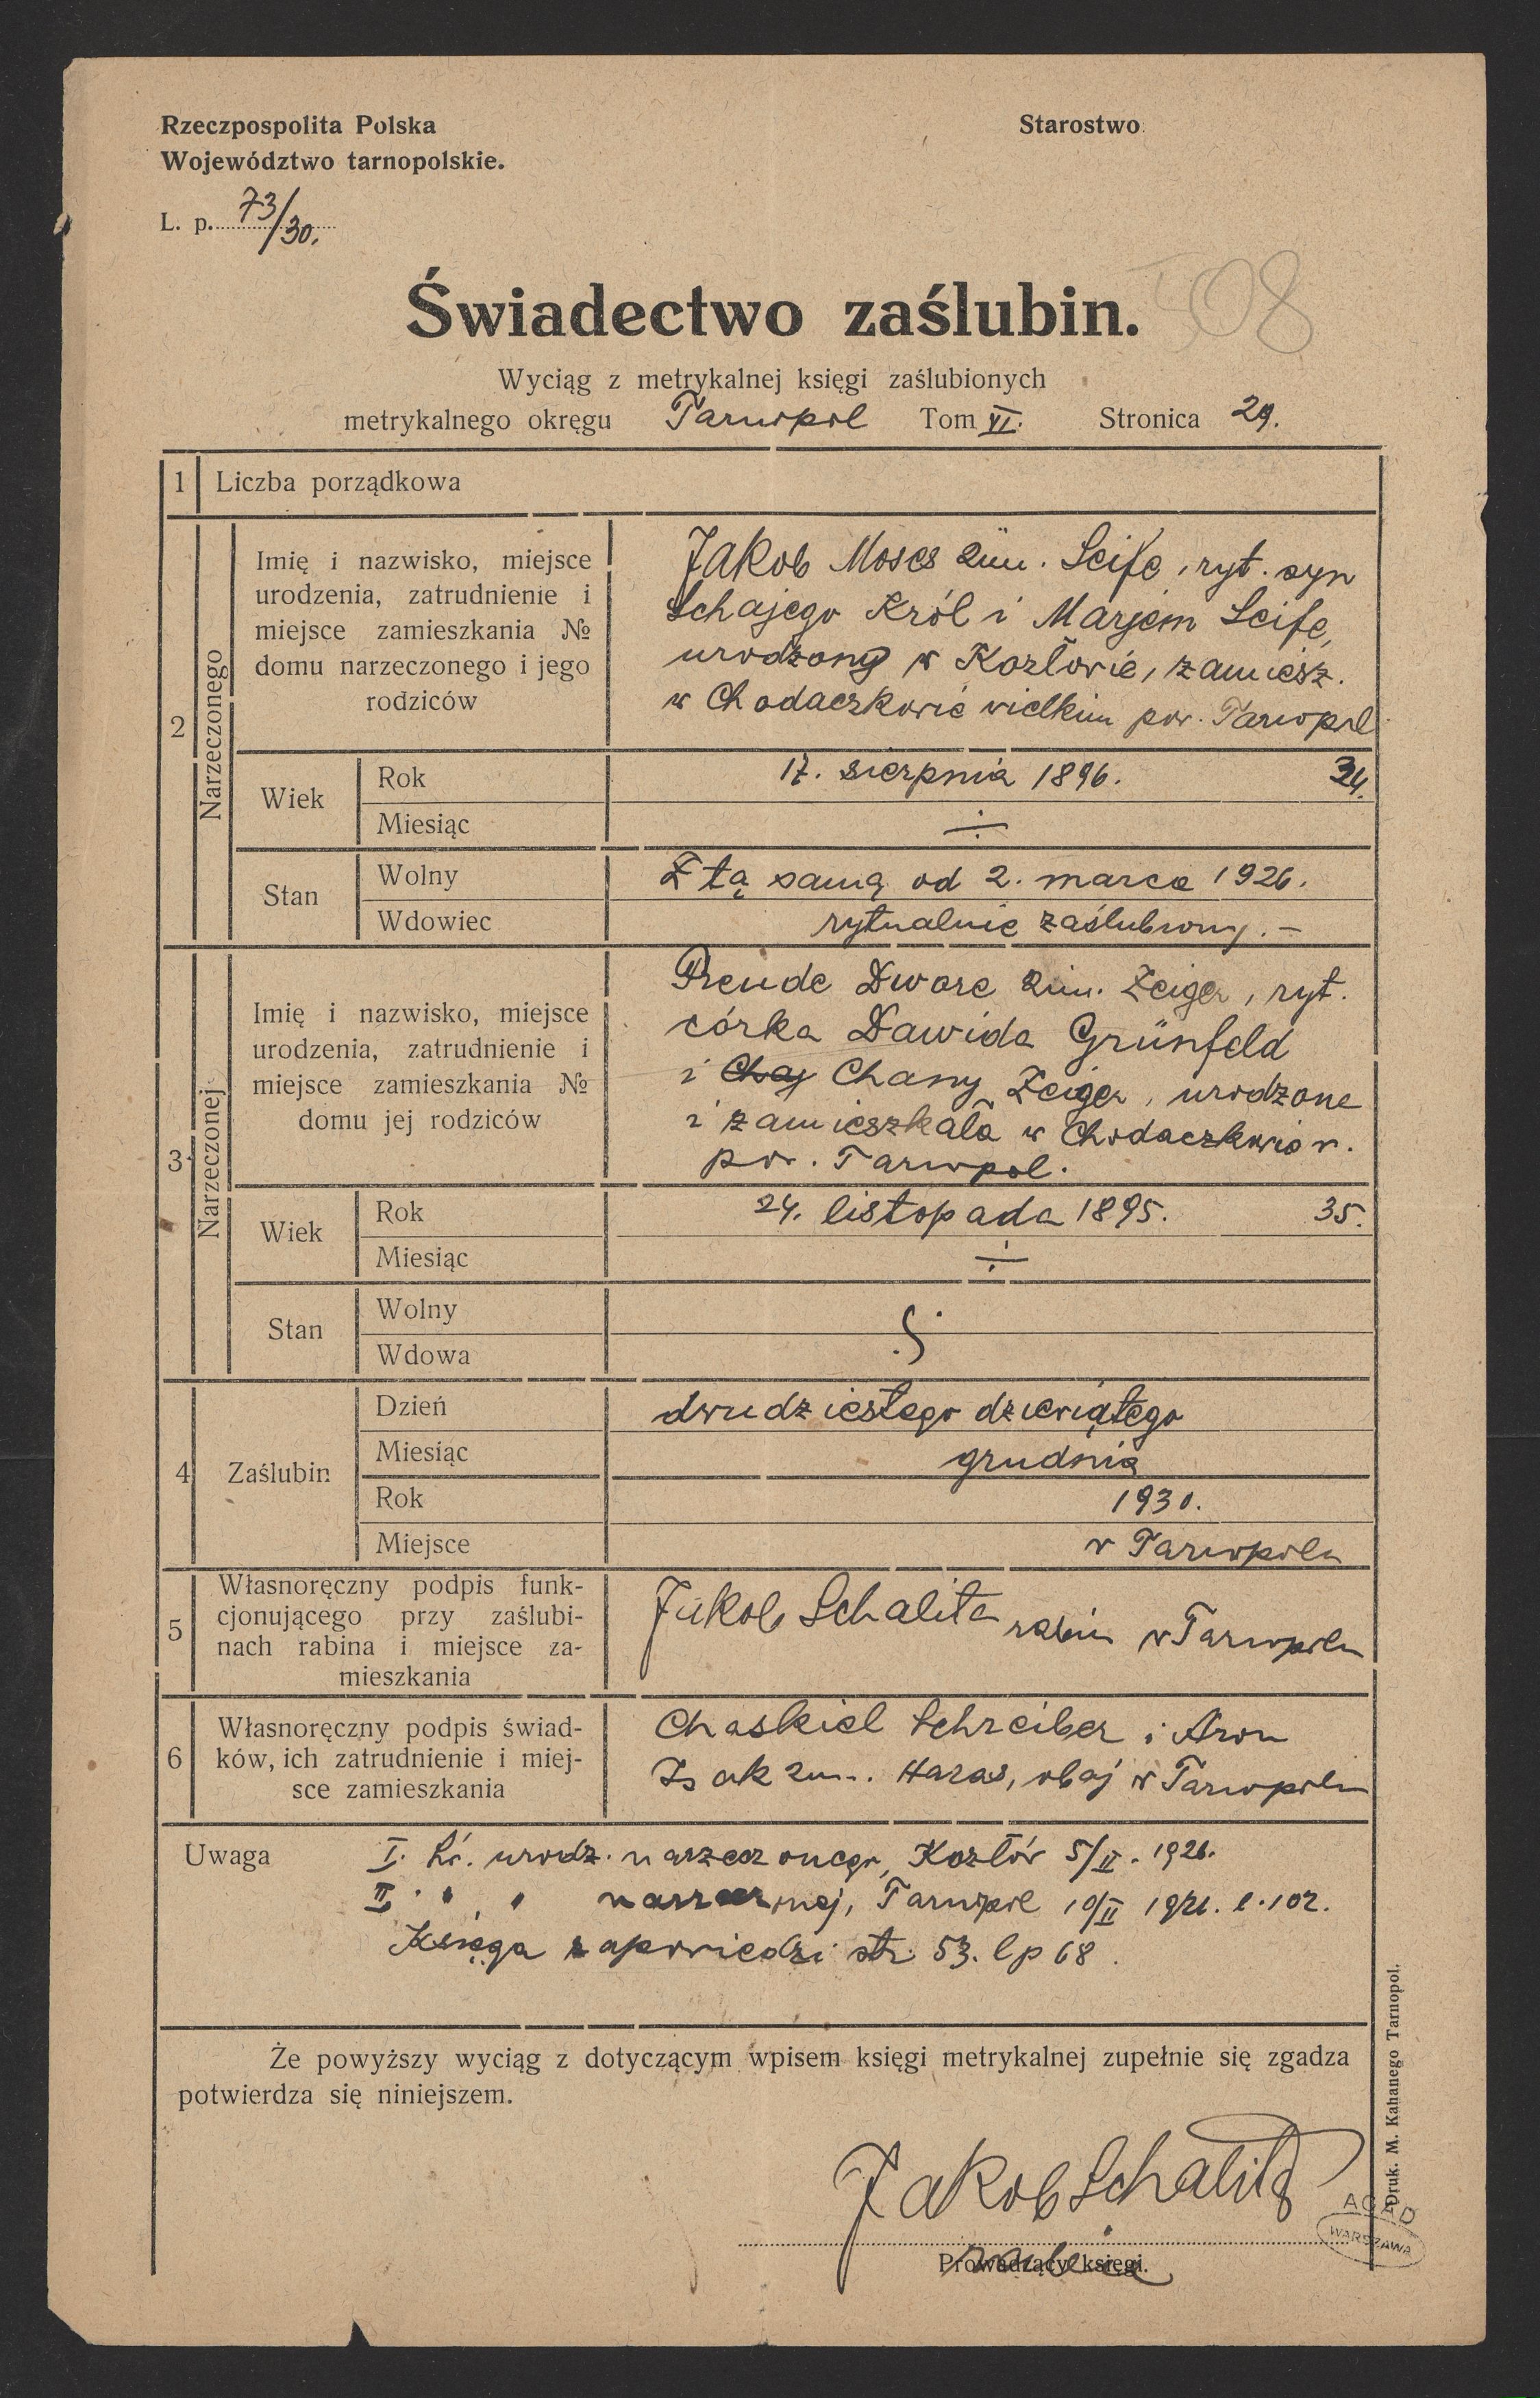 Rzeczpospolita Polska
Starostwo
Województwo tarnopolskie.
L. p. 73/30.
508
Świadectwo zaślubin.
Wyciąg z metrykalnej księgi zaślubionych
metrykalnego okręgu Tarnopol Tom VI. Stronica 29.
1 Liczba porządkowa
2 Narzeczonego
Imię i nazwisko, miejsce
urodzenia, zatrudnienie i
miejsce zamieszkania №
domu narzeczonego i jego
rodziców
Jakob Moses 2im. Seife, ryt. syn
Schajego Król i Marjem Seife,
urodzony w Kozłowie, zamiesz.
w Chodaczkowie wielkim pow. Tarnopol
Wiek
Rok 17. sierpnia 1896. 34.
Miesiąc ÷
Stan
Wolny Z tą samą od 2. marca 1926.
Wdowiec rytualnie zaślubiony. –
3 Narzeczonej
Imię i nazwisko, miejsce
urodzenia, zatrudnienie i
miejsce zamieszkania №
domu jej rodziców
Freude Dwore 2im. Zeiger, ryt.
córka Dawida Grünfeld
i Chaj Chany Zeiger, urodzone
i zamieszkała w Chodaczkowie w.
pow. Tarnopol.
Wiek
Rok 24. listopada 1895. 35.
Miesiąc ÷
Stan
Wolny
Wdowa
4 Zaślubin
Dzień dwudziestego dziewiątego
Miesiąc grudnia
Rok 1930.
Miejsce w Tarnopolu
5 Własnoręczny podpis funk-
cjonującego przy zaślubi-
nach rabina i miejsce za-
mieszkania
Jakob Schalita rabin w Tarnopolu
6 Własnoręczny podpis świad-
ków, ich zatrudnienie i miej-
sce zamieszkania
Chaskiel Schreiber i Aron
Izak 2im. Haras, obaj w Tarnopolu
Uwaga I. Św. urodz. narzeczonego, Kozłów 5/II. 1926.
II. " " narzeczonej, Tarnopol 10/II 1926. l. 102.
Księga zapowiedzi str. 53. lp 68.
Że powyższy wyciąg z dotyczącym wpisem księgi metrykalnej zupełnie się zgadza
potwierdza się niniejszem.
Jakob Schalita
rabin
Prowadzący księgi.
Druk. M. Kahanego Tarnopol.
AGAD
WARSZAWA